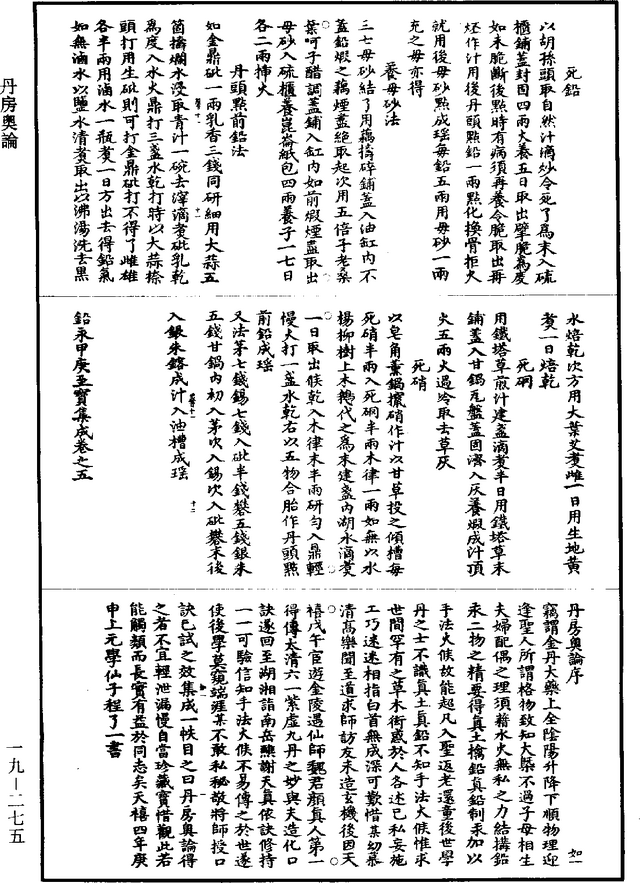 死鉛
以胡孫頭取自然汁滴炒令死了爲末入硫
櫃鋪蓋封固四兩火養五日取出擘脆爲度
如未脆斷後點時有病須再養令脆取出再
烀作汁用後丹頭點鉛一兩點化換骨拒火
就用後母砂點成瑶每鉛五兩用母砂一兩
充之母亦得
養母砂法
三七母砂結了用藕擣碎鋪蓋入油缸內不
蓋鉛煅之藕煙盡絕取起次用五倍子老桑
葉呵子醋調蓋鋪入缸內如前煅煙盡取出
母砂入硫櫃養崑崙紙包四兩養子一七日
各二兩揷火
丹頭點前鉛法
如金鼎砒一兩乳香三錢同研細用大蒜五
箇擣爛水浸取青汁一碗去滓滴煑砒乳乾
爲度入水火鼎打三盞水乾打時以大蒜搽
頭打用生砒則可打金鼎砒打不得了雌雄
各半兩用滷水一瓶煑一日方出去得鉛氣
如無滷水以鹽水清煑取出以沸湯洗去黑
水焙乾次方用大葉艾煑雌一日用生地黃
煑一日焙乾
死硇
用鐵塔草煎汁建盞滴煑半日用鐵塔草末
鋪蓋入甘鍋瓦盤蓋固濟入灰養煅成汁頂
火五兩火過冷取去草灰
死硝
以皂角薰鍋攘硝作汁以甘草投之傾槽每
死硝半兩入死硇半兩木律一兩如無以水
楊柳樹上木鵝代之爲末建盞內湖水滴煑
一日取出候乾入木律末半兩研勻入鼎輕
慢火打一盞水乾右以五物合胎作丹頭點
前鉛成瑶
又法茅七錢錫七錢入砒半錢礬五錢銀朱
五錢甘鍋內初入茅次入錫次入砒礬末後
入銀朱鎔成汁入油槽成瑶
鉛汞甲庚至寶集成卷之五
丹房奥論序
竊謂金丹大藥上全陰陽升降下順物理迎
逢聖人所謂格物致知大槩不過子母相生
夫婦配偶之理須藉水火無私之力結搆鉛
汞二物之精要得真土擒鉛真鉛制汞加以
手法火候故能超凡入聖返老還童後世學
丹之士不識真土真鉛不知手法火候惟求
世間罕有之草木術惑於人各述己私妄施
工巧迷迷相指白首無成深可歎惜某幼慕
清高樂聞至道求師訪友未造玄機後因天
禧戊午宦遊金陵遇仙師魏君顏真人第一
得傳太清六一紫虛九丹之妙與夫造化口
訣遂回至湖湘詣南岳與謝天真依訣修持
一一可驗信知手法火候不易傳之於世遂
使後學莫窺端涯某不敢私秘敬將師授口
訣已試之效集成一帙目之曰丹房奥論得
之者不宜輕泄漏慢自當珍藏寶惜觀此若
能觸類而長實有益於同志矣天禧四年庚
申上元學仙子程了一書
丹房奥論
一九—二七五